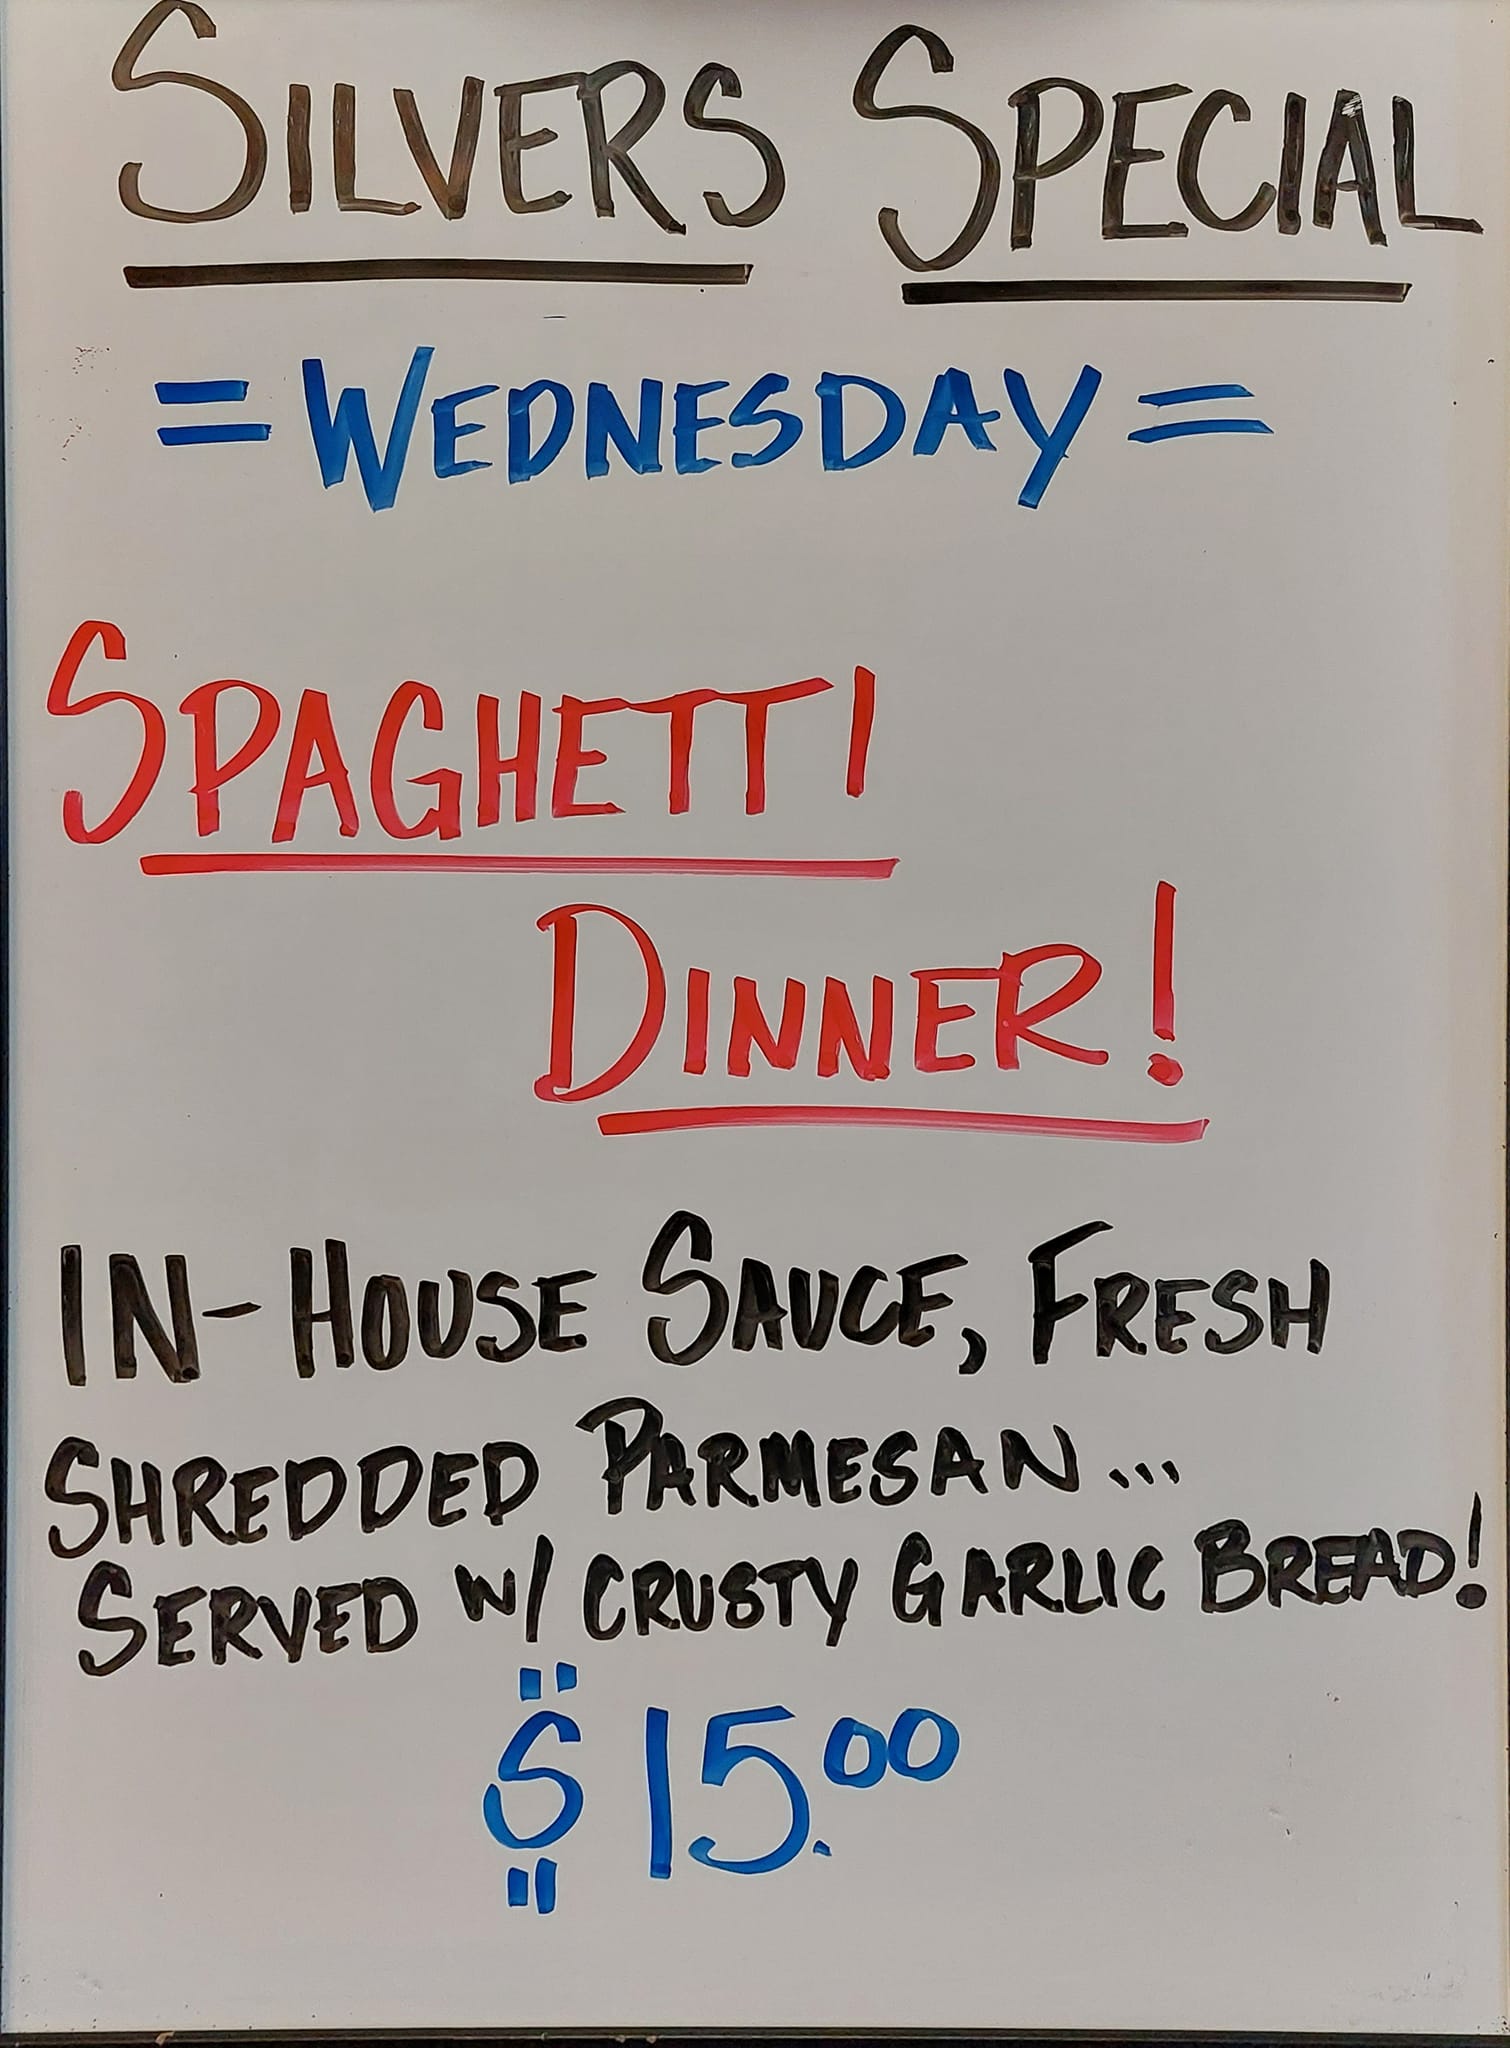 SILVERS SPECIAL
= WEDNESDAY =
SPAGHETTI
DINNER!
IN-HOUSE SAUCE, FRESH
SHREDDED PARMESAN...
SERVED W/ CRUSTY GARLIC BREAD!
$15.00